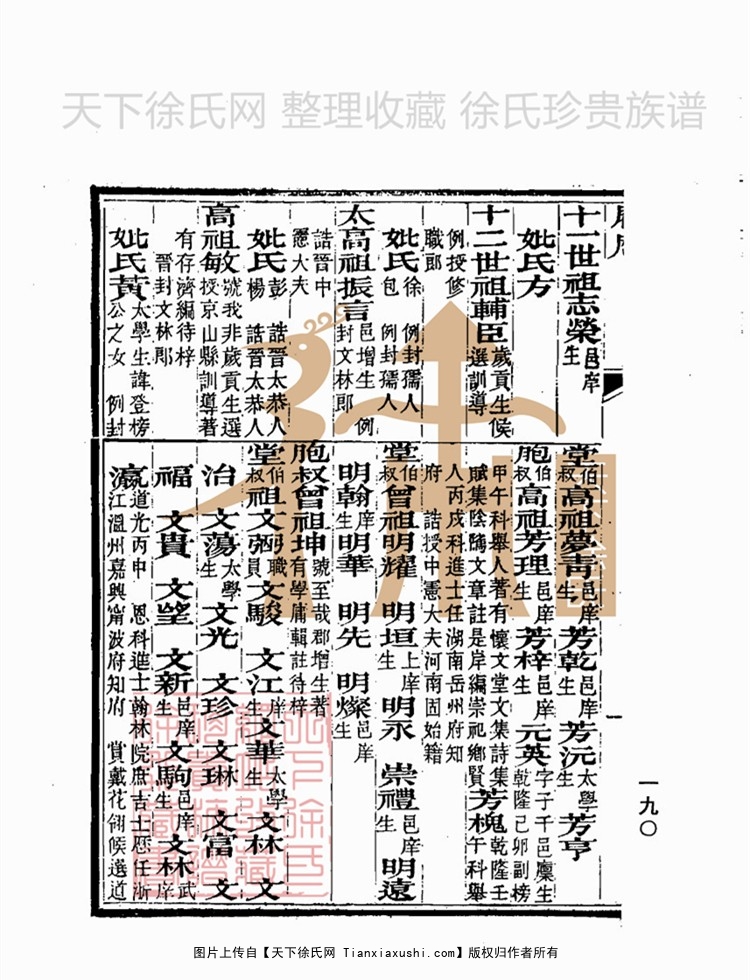 天下徐氏网 整理收藏 徐氏珍贵族谱
十一世祖志榮邑庠生
妣氏方
十二世祖輔臣歲貢生候選訓導
例授修職郎
妣氏徐包 例封孺人 例封孺人
太高祖振言邑增生 例封文林郎
誥晉中憲大夫
妣氏彭楊 誥晉太恭人 誥晉太恭人
高祖敏號我非歲貢生選授京山縣訓導著
有存濟編待梓
晉封文林郎
妣氏黃太學生諱登榜公之女 例封
堂伯叔高祖夢青邑庠生 芳乾邑庠生 芳沅太學生 芳亨
胞伯叔高祖芳理邑庠生 芳梓邑庠生 元英字子千邑廩生乾隆己卯副榜
甲午科舉人著有懷文堂文集詩集芳槐乾隆壬午科舉
賦集陰隲文章註是岸編崇祀鄉賢
人丙戌科進士任湖南岳州府知
府 誥授中憲大夫河南固始籍
堂伯叔曾祖明耀 明垣上庠生 明永 崇禮邑庠生 明遠
明翰庠生 明華 明先 明燦邑庠生
胞叔曾祖坤號至哉郡增生著有學庸輯註待梓
堂伯叔祖文弼職員 文駿 文江庠生 文華太學生 文林 文
治 文蕩太學生 文光 文珍 文琳 文富 文
福 文貴 文望 文新邑庠生 文駒邑庠生 文林武庠
瀛道光丙申 恩科進士翰林院庶吉士歷任浙江溫州嘉興甯波府知府 賞戴花翎候選道
一九〇
图片上传自【天下徐氏网 Tianxiaxushi.com】版权归作者所有